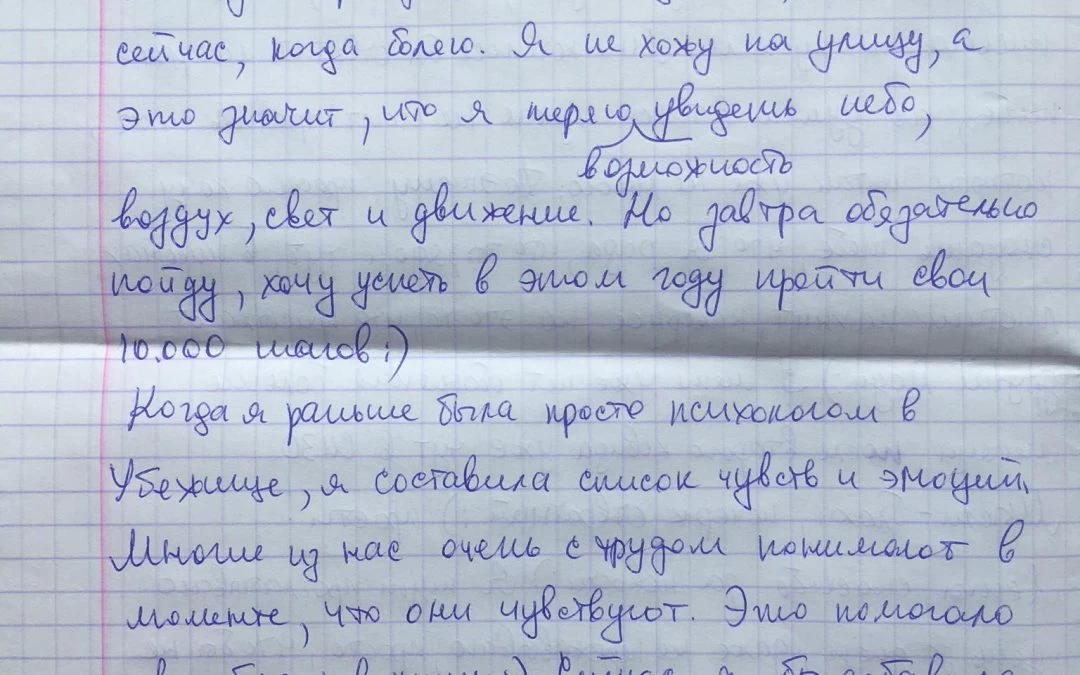 сейчас, когда болею. Я не хожу на улицу, а
это значит, что я теряю увидешь небо,
возможность
воздух, свет и движение. Но завтра обязательно
пойду, хочу успеть в этом году пройти свои
10.000 шагов :)
Когда я раньше была просто психологом в
Убежище, я составила список чувств и эмоций.
Многие из нас очень с трудом понимают в
моменте, что они чувствуют. Это помогало